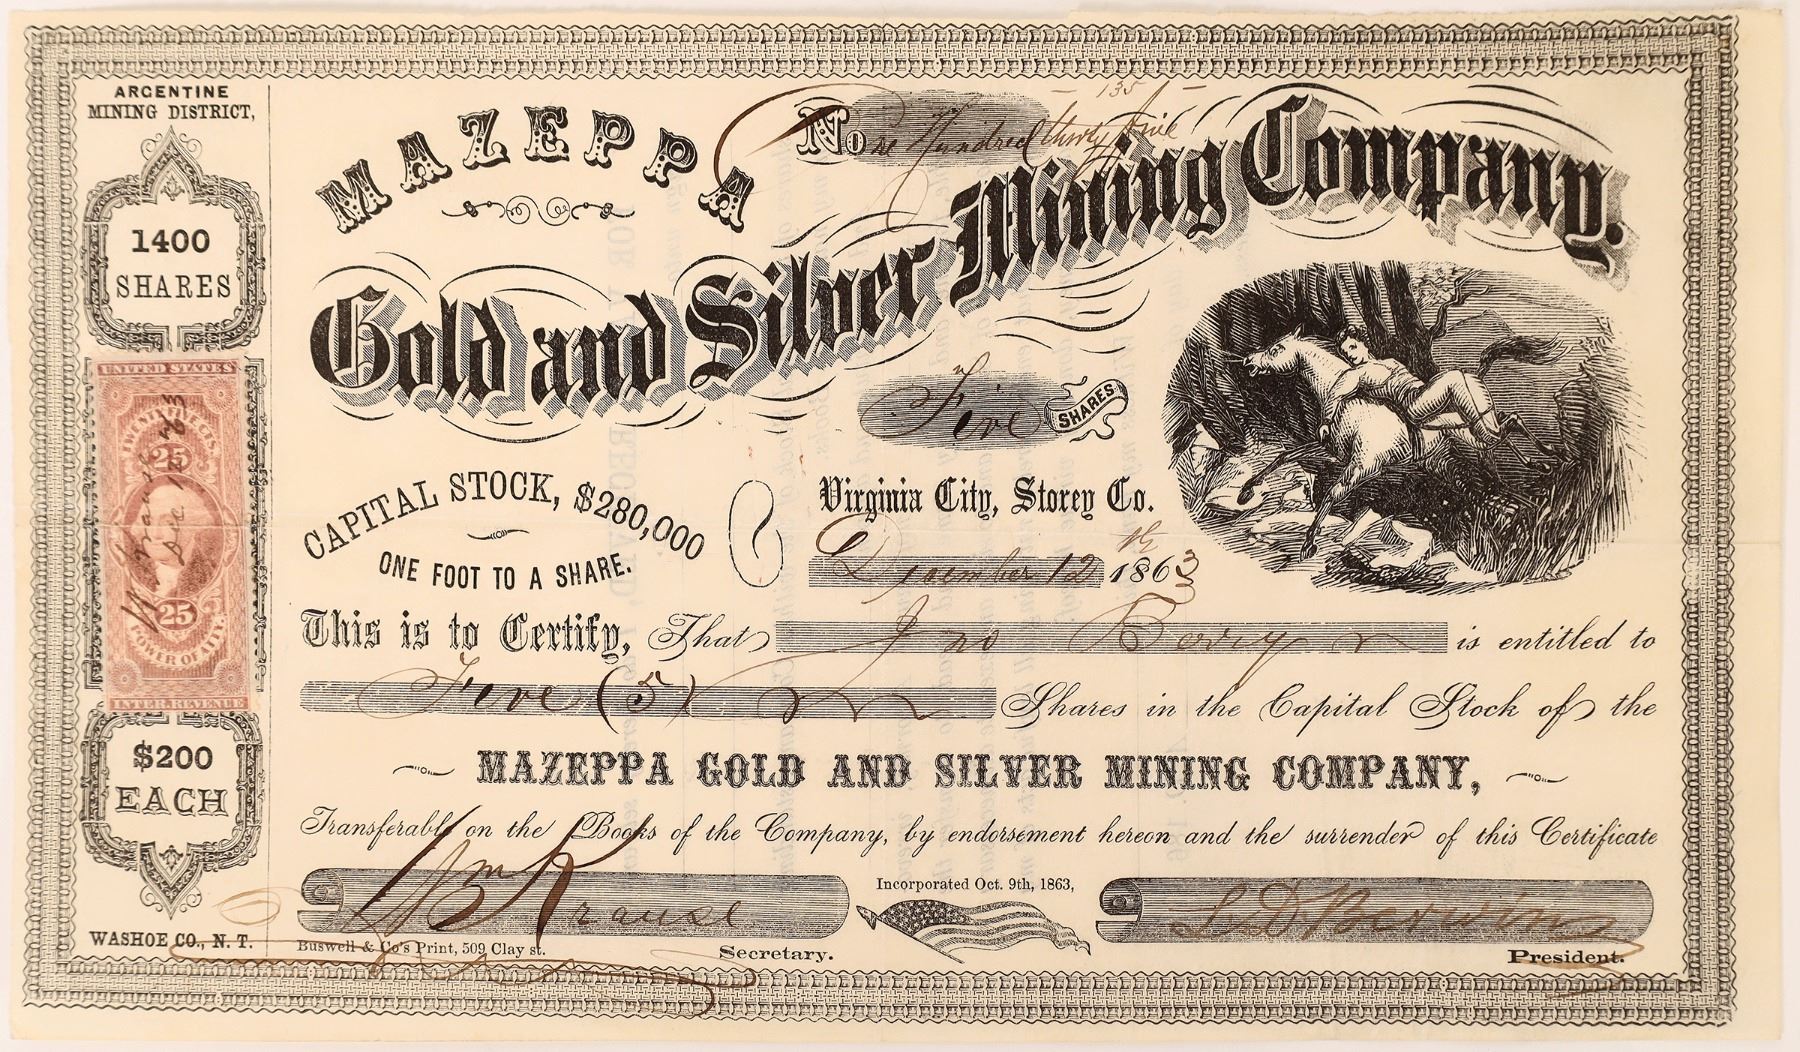 ARGENTINE
MINING DISTRICT,
1400
SHARES
UNITED STATES
TWENTY FIVE CTS.
25
Wm Krause
Dec 12 63
25
POWER OF ATY.
INTER. REVENUE
$200
EACH
WASHOE CO., N. T.
- 135 -
No One Hundred thirty five
MAZEPPA
Gold and Silver Mining Company.
Five SHARES
CAPITAL STOCK, $280,000
ONE FOOT TO A SHARE.
Virginia City, Storey Co.
December 12th 1863
This is to Certify, That Jno Berry is entitled to
Five (5) Shares in the Capital Stock of the
MAZEPPA GOLD AND SILVER MINING COMPANY,
Transferable on the Books of the Company, by endorsement hereon and the surrender of this Certificate
Wm Krause
Incorporated Oct. 9th, 1863,
L D Berwin
Buswell & Co's Print, 509 Clay st.
Secretary.
President.